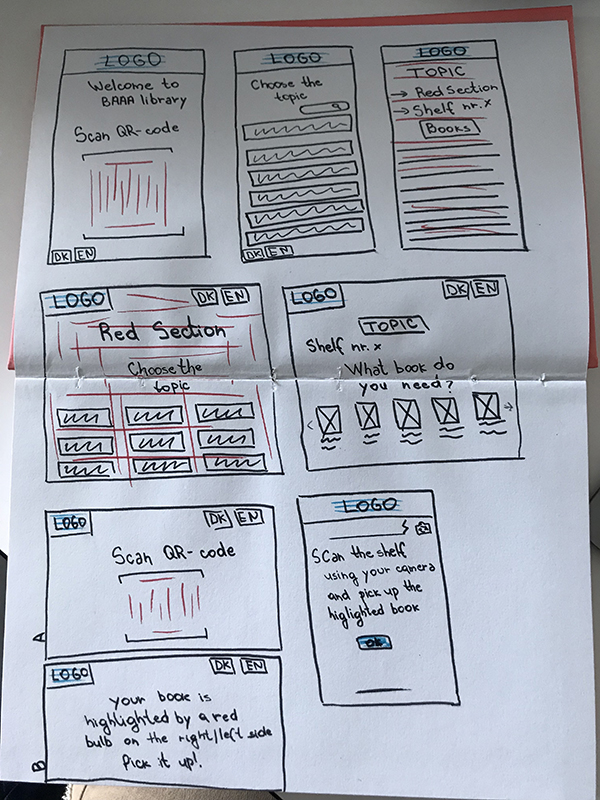 LOGO
Welcome to
BAAA library
Scan QR-code
DK EN
LOGO
Choose the
topic
DK EN
LOGO
TOPIC
→ Red Section
→ Shelf nr. x
Books
LOGO
DK EN
Red Section
Choose the
topic
LOGO
DK EN
TOPIC
Shelf nr. x
What book do
you need?
A
LOGO
DK EN
Scan QR-code
LOGO
Scan the shelf
using your camera
and pick up the
higlighted book
OK
B
LOGO
DK EN
your book is
highlighted by a red
bulb on the right/left side
Pick it up!